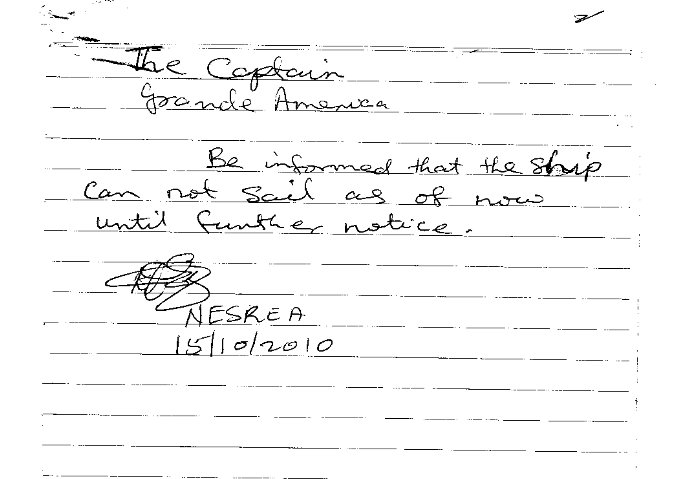 The Captain
Grande America
Be informed that the ship
can not sail as of now
until further notice.
NESREA
15/10/2010